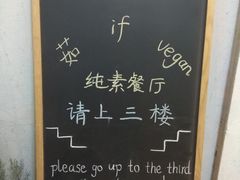 if
茹 vegan
纯素餐厅
请上三楼
please go up to the third